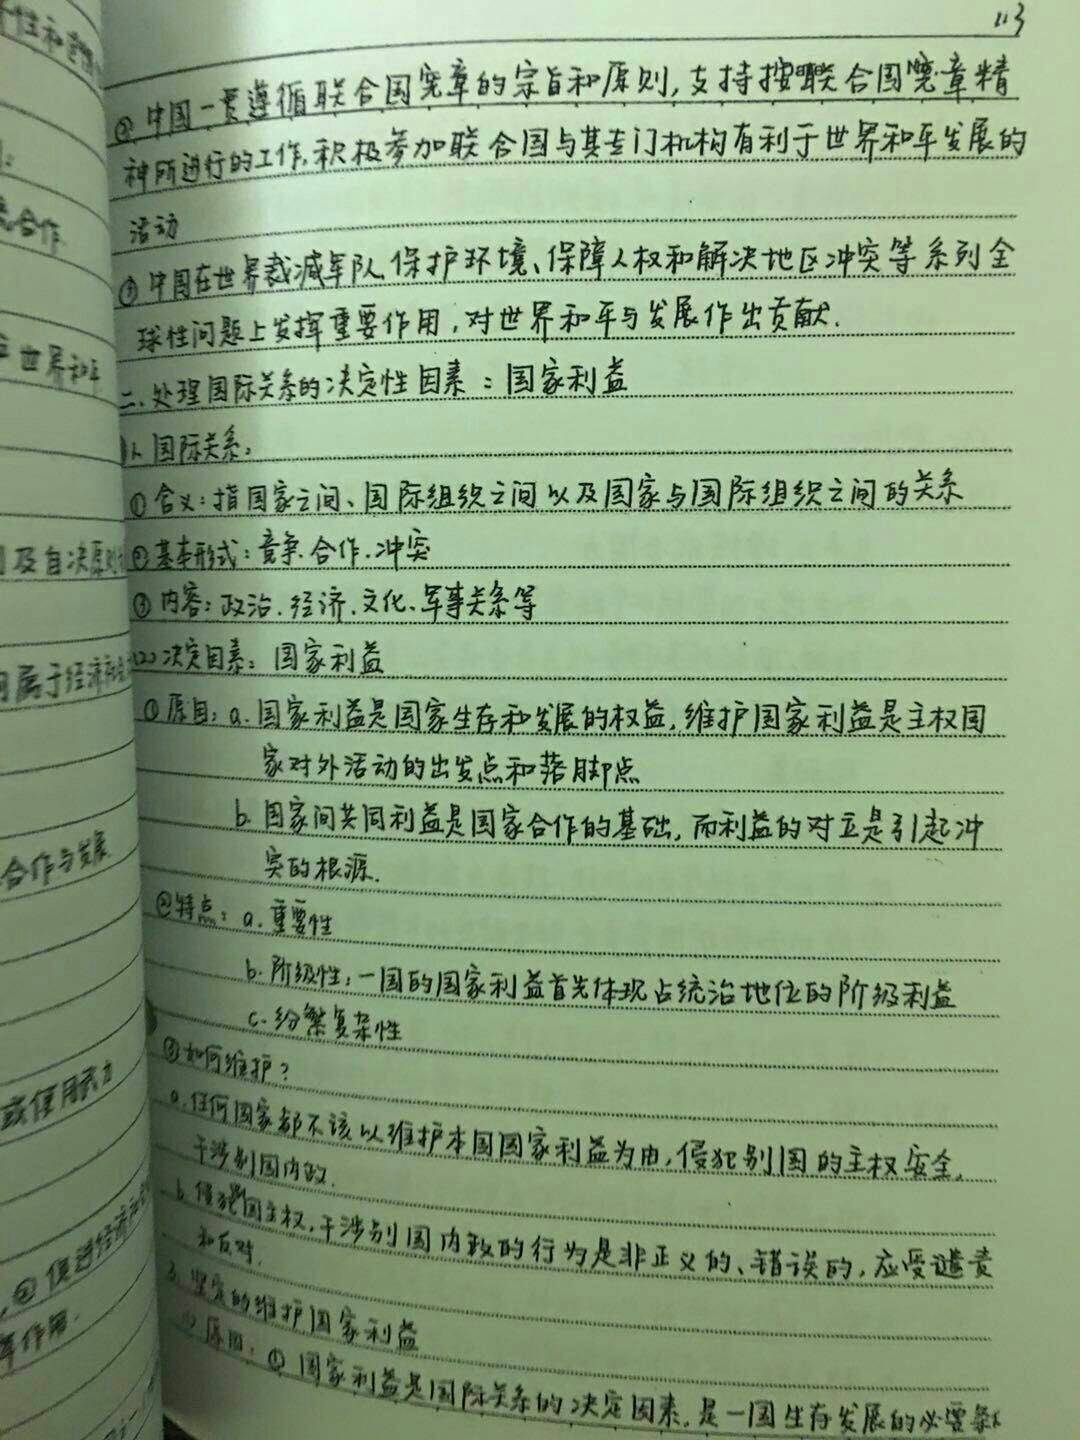 113
② 中国一贯遵循联合国宪章的宗旨和原则,支持按联合国宪章精
神所进行的工作,积极参加联合国与其专门机构有利于世界和平发展的
活动
③ 中国在世界裁减军队、保护环境、保障人权和解决地区冲突等系列全
球性问题上发挥重要作用,对世界和平与发展作出贡献.
二、处理国际关系的决定性因素:国家利益
1、国际关系:
① 含义:指国家之间、国际组织之间以及国家与国际组织之间的关系
② 基本形式:竞争、合作、冲突
③ 内容:政治、经济、文化、军事关系等
(2)决定因素:国家利益
① 原因:a. 国家利益是国家生存和发展的权益,维护国家利益是主权国
家对外活动的出发点和落脚点
b. 国家间共同利益是国家合作的基础,而利益的对立是引起冲
突的根源.
② 特点:a. 重要性
b. 阶级性:一国的国家利益首先体现占统治地位的阶级利益
c. 纷繁复杂性
③ 如何维护?
a. 任何国家都不该以维护本国国家利益为由,侵犯别国的主权安全,
干涉别国内政.
b. 侵犯别国主权,干涉别国内政的行为是非正义的、错误的,应受谴责
和反对.
3. 坚定的维护国家利益
(1) 原因:① 国家利益是国际关系的决定因素,是一国生存发展的必要条
性和
合作.
世界和平
及自决原则
属于经济
合作与发展
或使用武力
② 促进经济
作用.